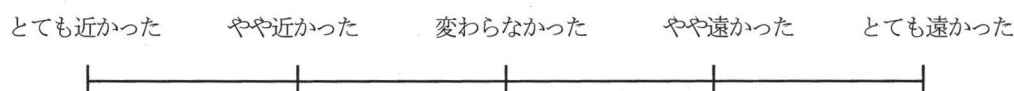 とても近かった　やや近かった　変わらなかった　やや遠かった　とても遠かった